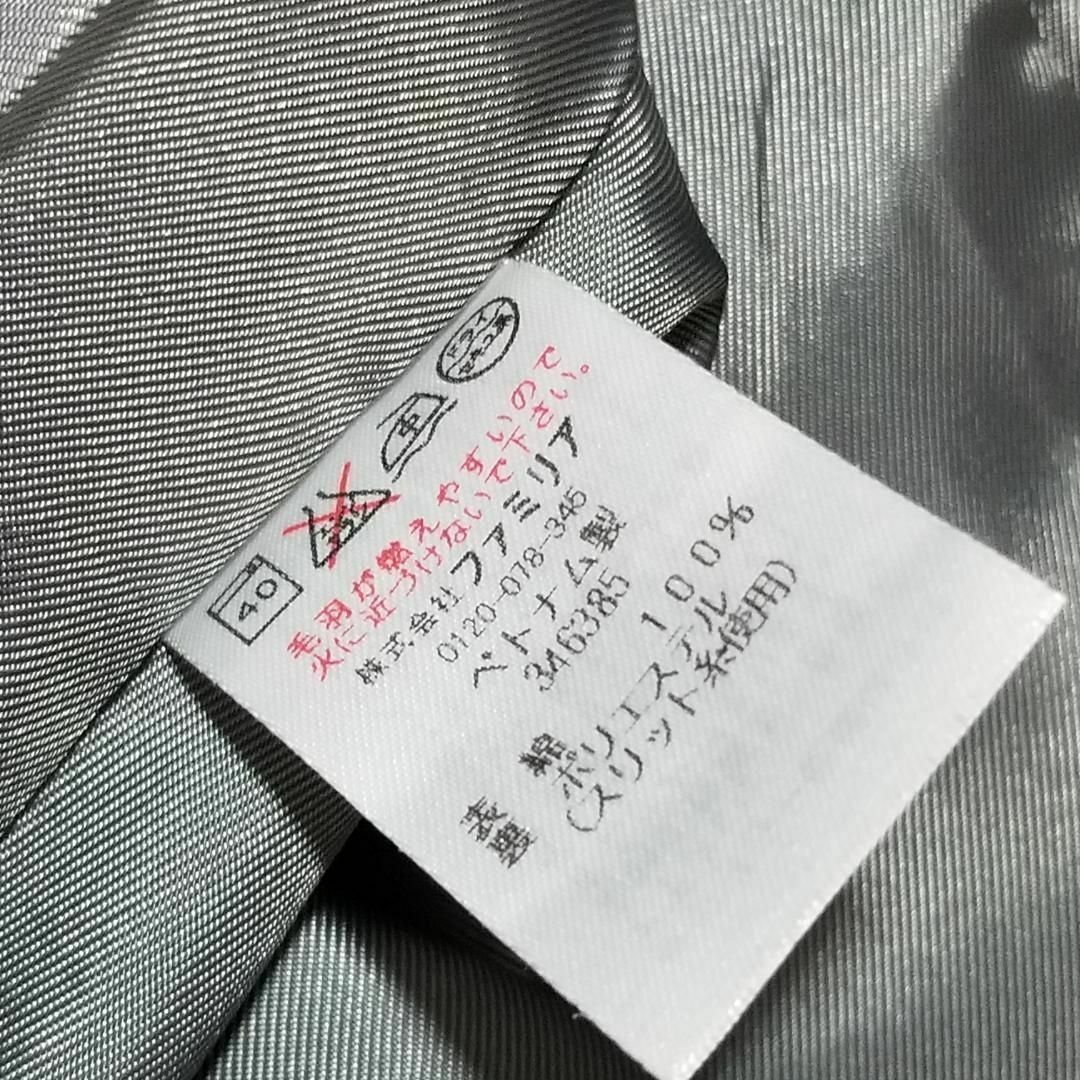 40
中
ドライ
セキユ系
毛羽が燃えやすいので
火に近づけないで下さい。
株式会社ファミリア
0120-078-345
ベトナム製
346385
表 綿 100%
裏 ポリエステル
(スリット糸使用)